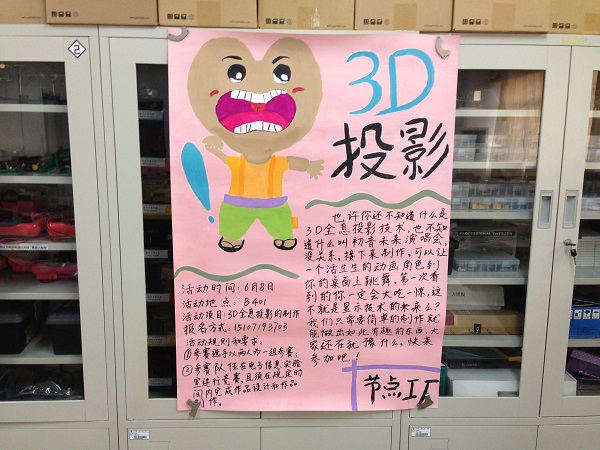 2
3D
投影
也许你还不知道什么是
3D全息投影技术,也不知
道什么叫初音未来演唱会。
没关系,接下来制作,可以让
一个活生生的动画角色到
你的桌面上跳舞。第一次看
到的你一定会大吃一惊,这
不就是显示技术的未来么?
我们只需要简单的制作就
能做出如此有趣的东西,大
家还在犹豫什么,快来
参加吧!
活动时间:6月8日
活动地点:B401
活动项目:3D全息投影的制作
报名方式:15107193703
活动规则和要求:
①参赛选手以两人为一组参赛;
②参赛队伍在电子信息实验
室进行竞赛,且须在规定时
间内完成作品设计和作品
制作。
节点工厂